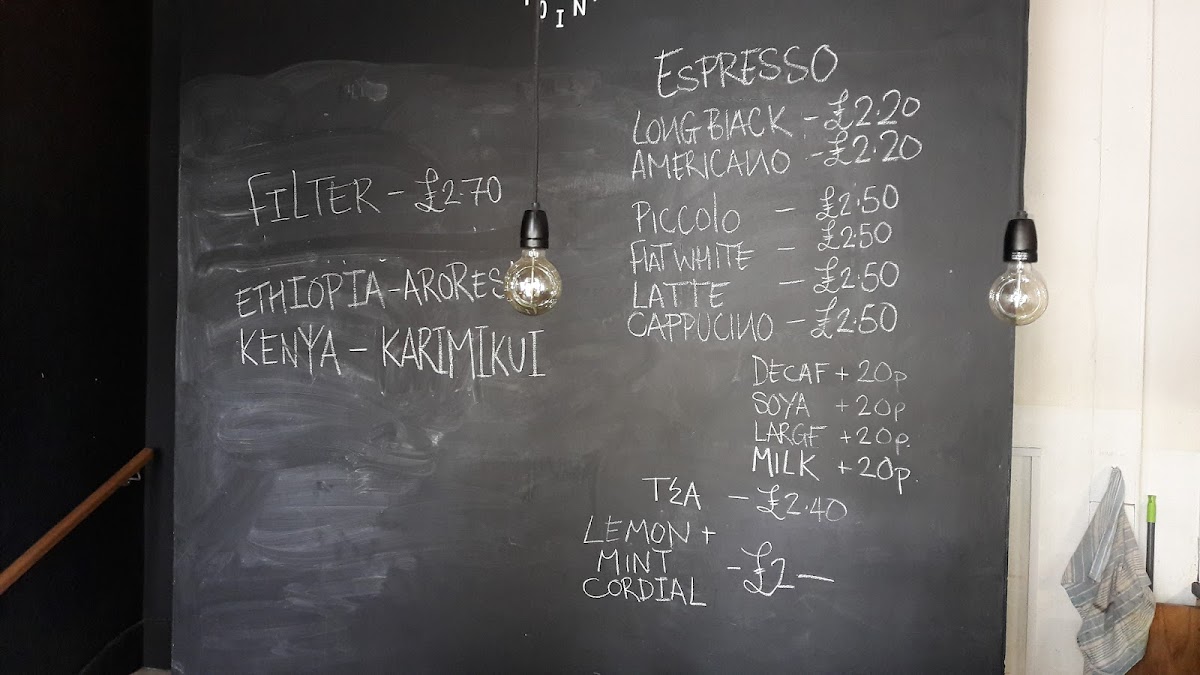 FILTER - £2.70
ETHIOPIA - ARORES
KENYA - KARIMIKUI
ESPRESSO
LONG BLACK - £2.20
AMERICANO - £2.20
PICCOLO - £2.50
FLAT WHITE - £2.50
LATTE - £2.50
CAPPUCINO - £2.50
DECAF + 20p
SOYA + 20p
LARGE + 20p.
MILK + 20p.
TEA - £2.40
LEMON +
MINT - £2 —
CORDIAL